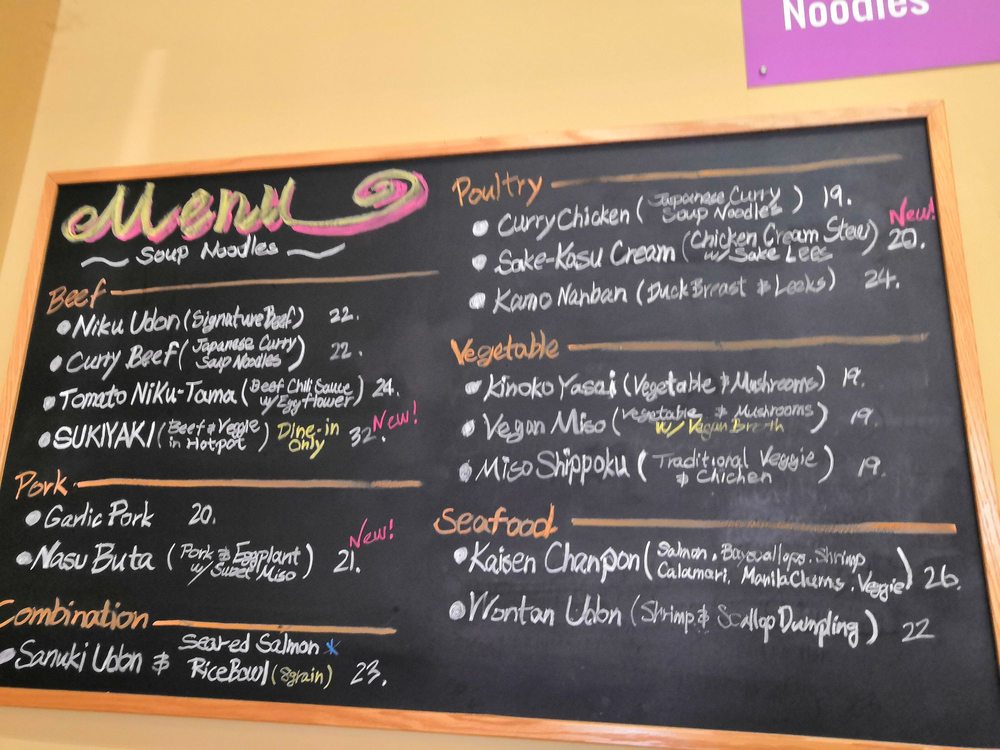 Noodles
Menu
~ Soup Noodles ~
Beef
Niku Udon (Signature Beef) 22.
Curry Beef (Japanese Curry
Soup Noodles) 22.
Tomato Niku-Tama (Beef Chili Sauce
w/ Egg Flower) 24.
SUKIYAKI (Beef & Veggie
in Hotpot) Dine-in
Only 32. New!
Pork
Garlic Pork 20.
Nasu Buta (Pork & Eggplant
w/ Sweet Miso) 21. New!
Combination
Sanuki Udon & Seared Salmon *
Rice Bowl (8grain) 23.
Poultry
Curry Chicken (Japanese Curry
Soup Noodles) 19.
Sake-Kasu Cream (Chicken Cream Stew
w/ Sake Lees) 20. New!
Kamo Nanban (Duck Breast & Leeks) 24.
Vegetable
Kinoko Yasai (Vegetable & Mushrooms) 19.
Vegan Miso (Vegetable & Mushrooms
w/ Vegan Broth) 19.
Miso Shippoku (Traditional Veggie
& Chichen) 19.
Seafood
Kaisen Chanpon (Salmon, Bayscallops, Shrimp
Calamari, Manila Clams, Veggie) 26.
Wontan Udon (Shrimp & Scallop Dumpling) 22